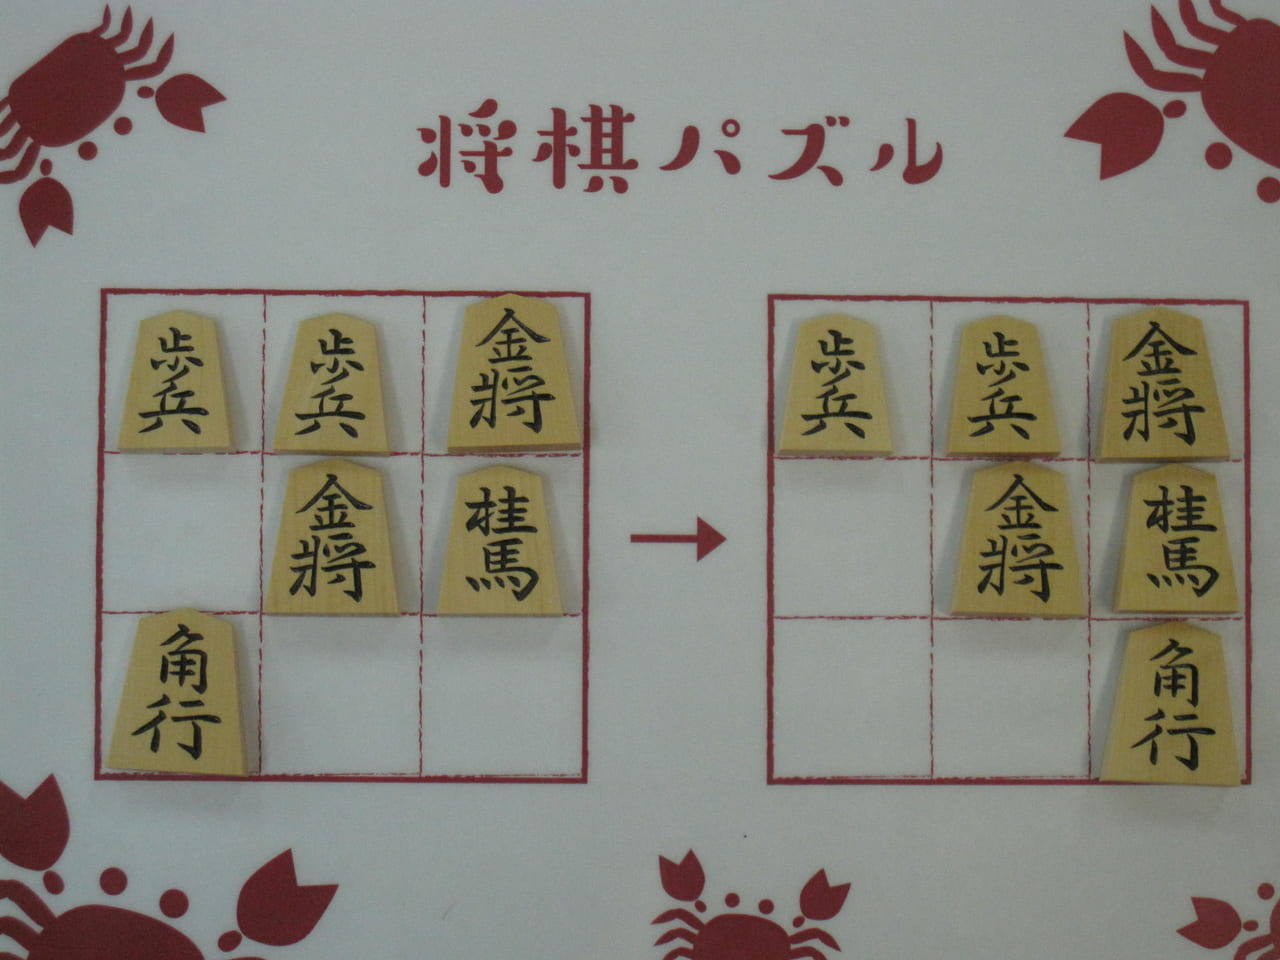 将棋パズル
歩兵 歩兵 金將
金將 桂馬
角行
→
歩兵 歩兵 金將
金將 桂馬
角行